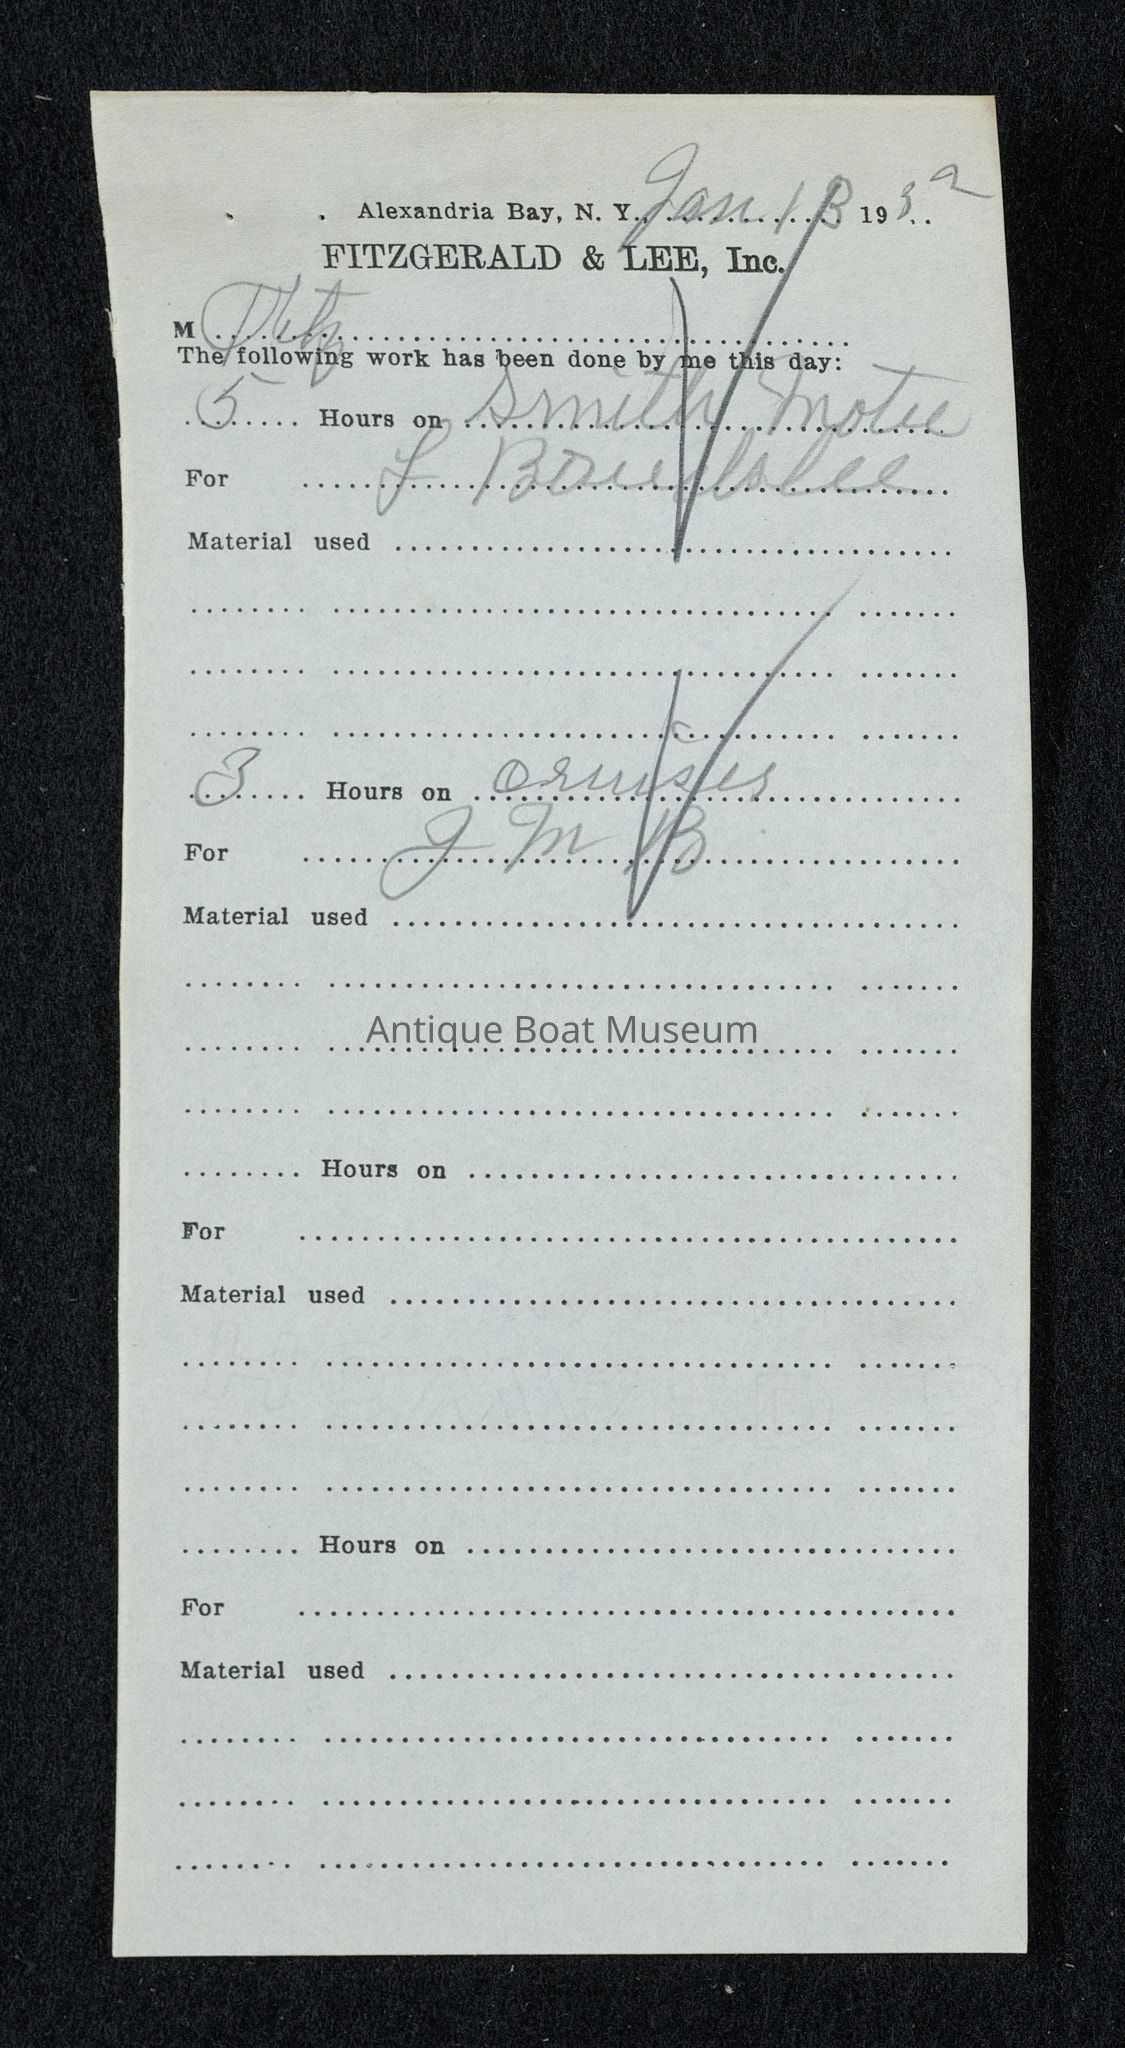 Alexandria Bay, N. Y., Jan 13 1932
FITZGERALD & LEE, Inc.
M Fitz
The following work has been done by me this day:
5 Hours on Smith Motor
For L
Material used
3 Hours on cruiser
For J M B
Material used
Antique Boat Museum
Hours on
For
Material used
Hours on
For
Material used